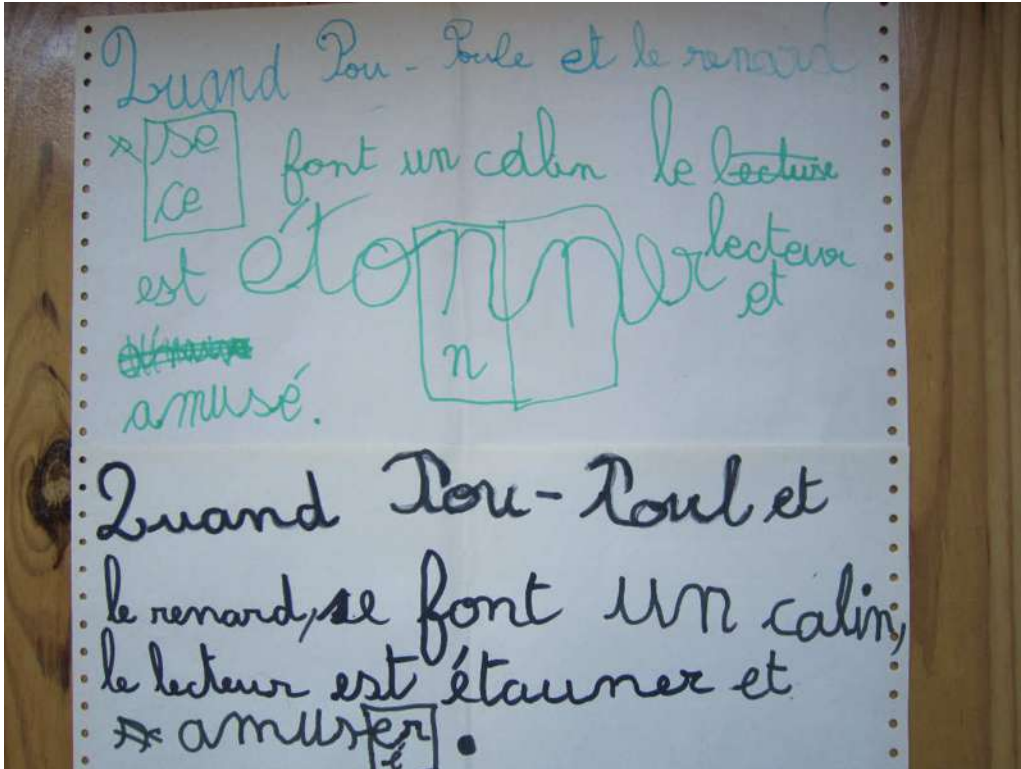 Quand Pou-Poule et le renard
* se font un câlin le lecture
ce
est étonner lecteur
et
n
amusé.
Quand Pou-Poul et
le renard, se font un calin,
le lecteur est étauner et
* amuser.
é